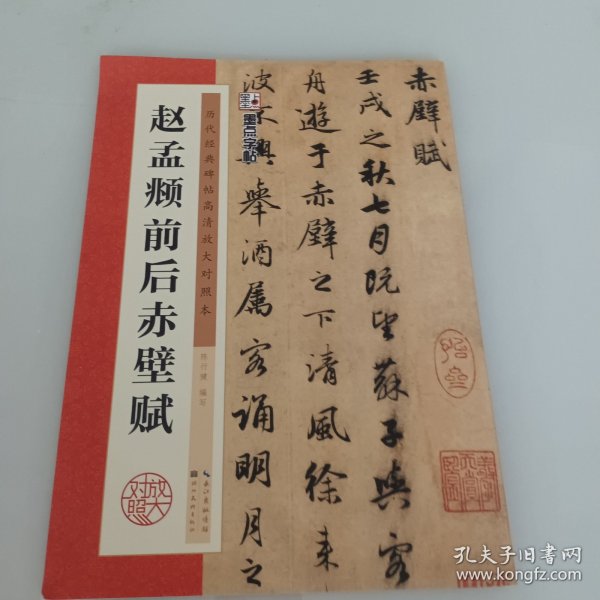 赵孟頫前后赤壁赋
历代经典碑帖高清放大对照本
陈行健 编写
放大
对照
长江出版传媒
湖北美术出版社
墨点
墨点字帖
赤壁赋
壬戌之秋七月既望苏子与客
舟遊于赤壁之下清風徐来
波不興舉酒属客诵明月之
孔夫子旧书网
www.kongfz.com